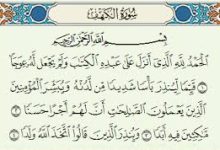 سُورَةُ الْكَهْفِ
بِسْمِ اللَّهِ الرَّحْمَٰنِ الرَّحِيمِ
الْحَمْدُ لِلَّهِ الَّذِي أَنزَلَ عَلَىٰ عَبْدِهِ الْكِتَٰبَ وَلَمْ يَجْعَل لَّهُ عِوَجَا ۜ ١
قَيِّمًا لِّيُنذِرَ بَأْسًا شَدِيدًا مِّن لَّدُنْهُ وَيُبَشِّرَ الْمُؤْمِنِينَ
الَّذِينَ يَعْمَلُونَ الصَّٰلِحَٰتِ أَنَّ لَهُمْ أَجْرًا حَسَنًا ٢
مَّٰكِثِينَ فِيهِ أَبَدًا ٣ وَيُنذِرَ الَّذِينَ قَالُوا اتَّخَذَ اللَّهُ وَلَدًا ٤